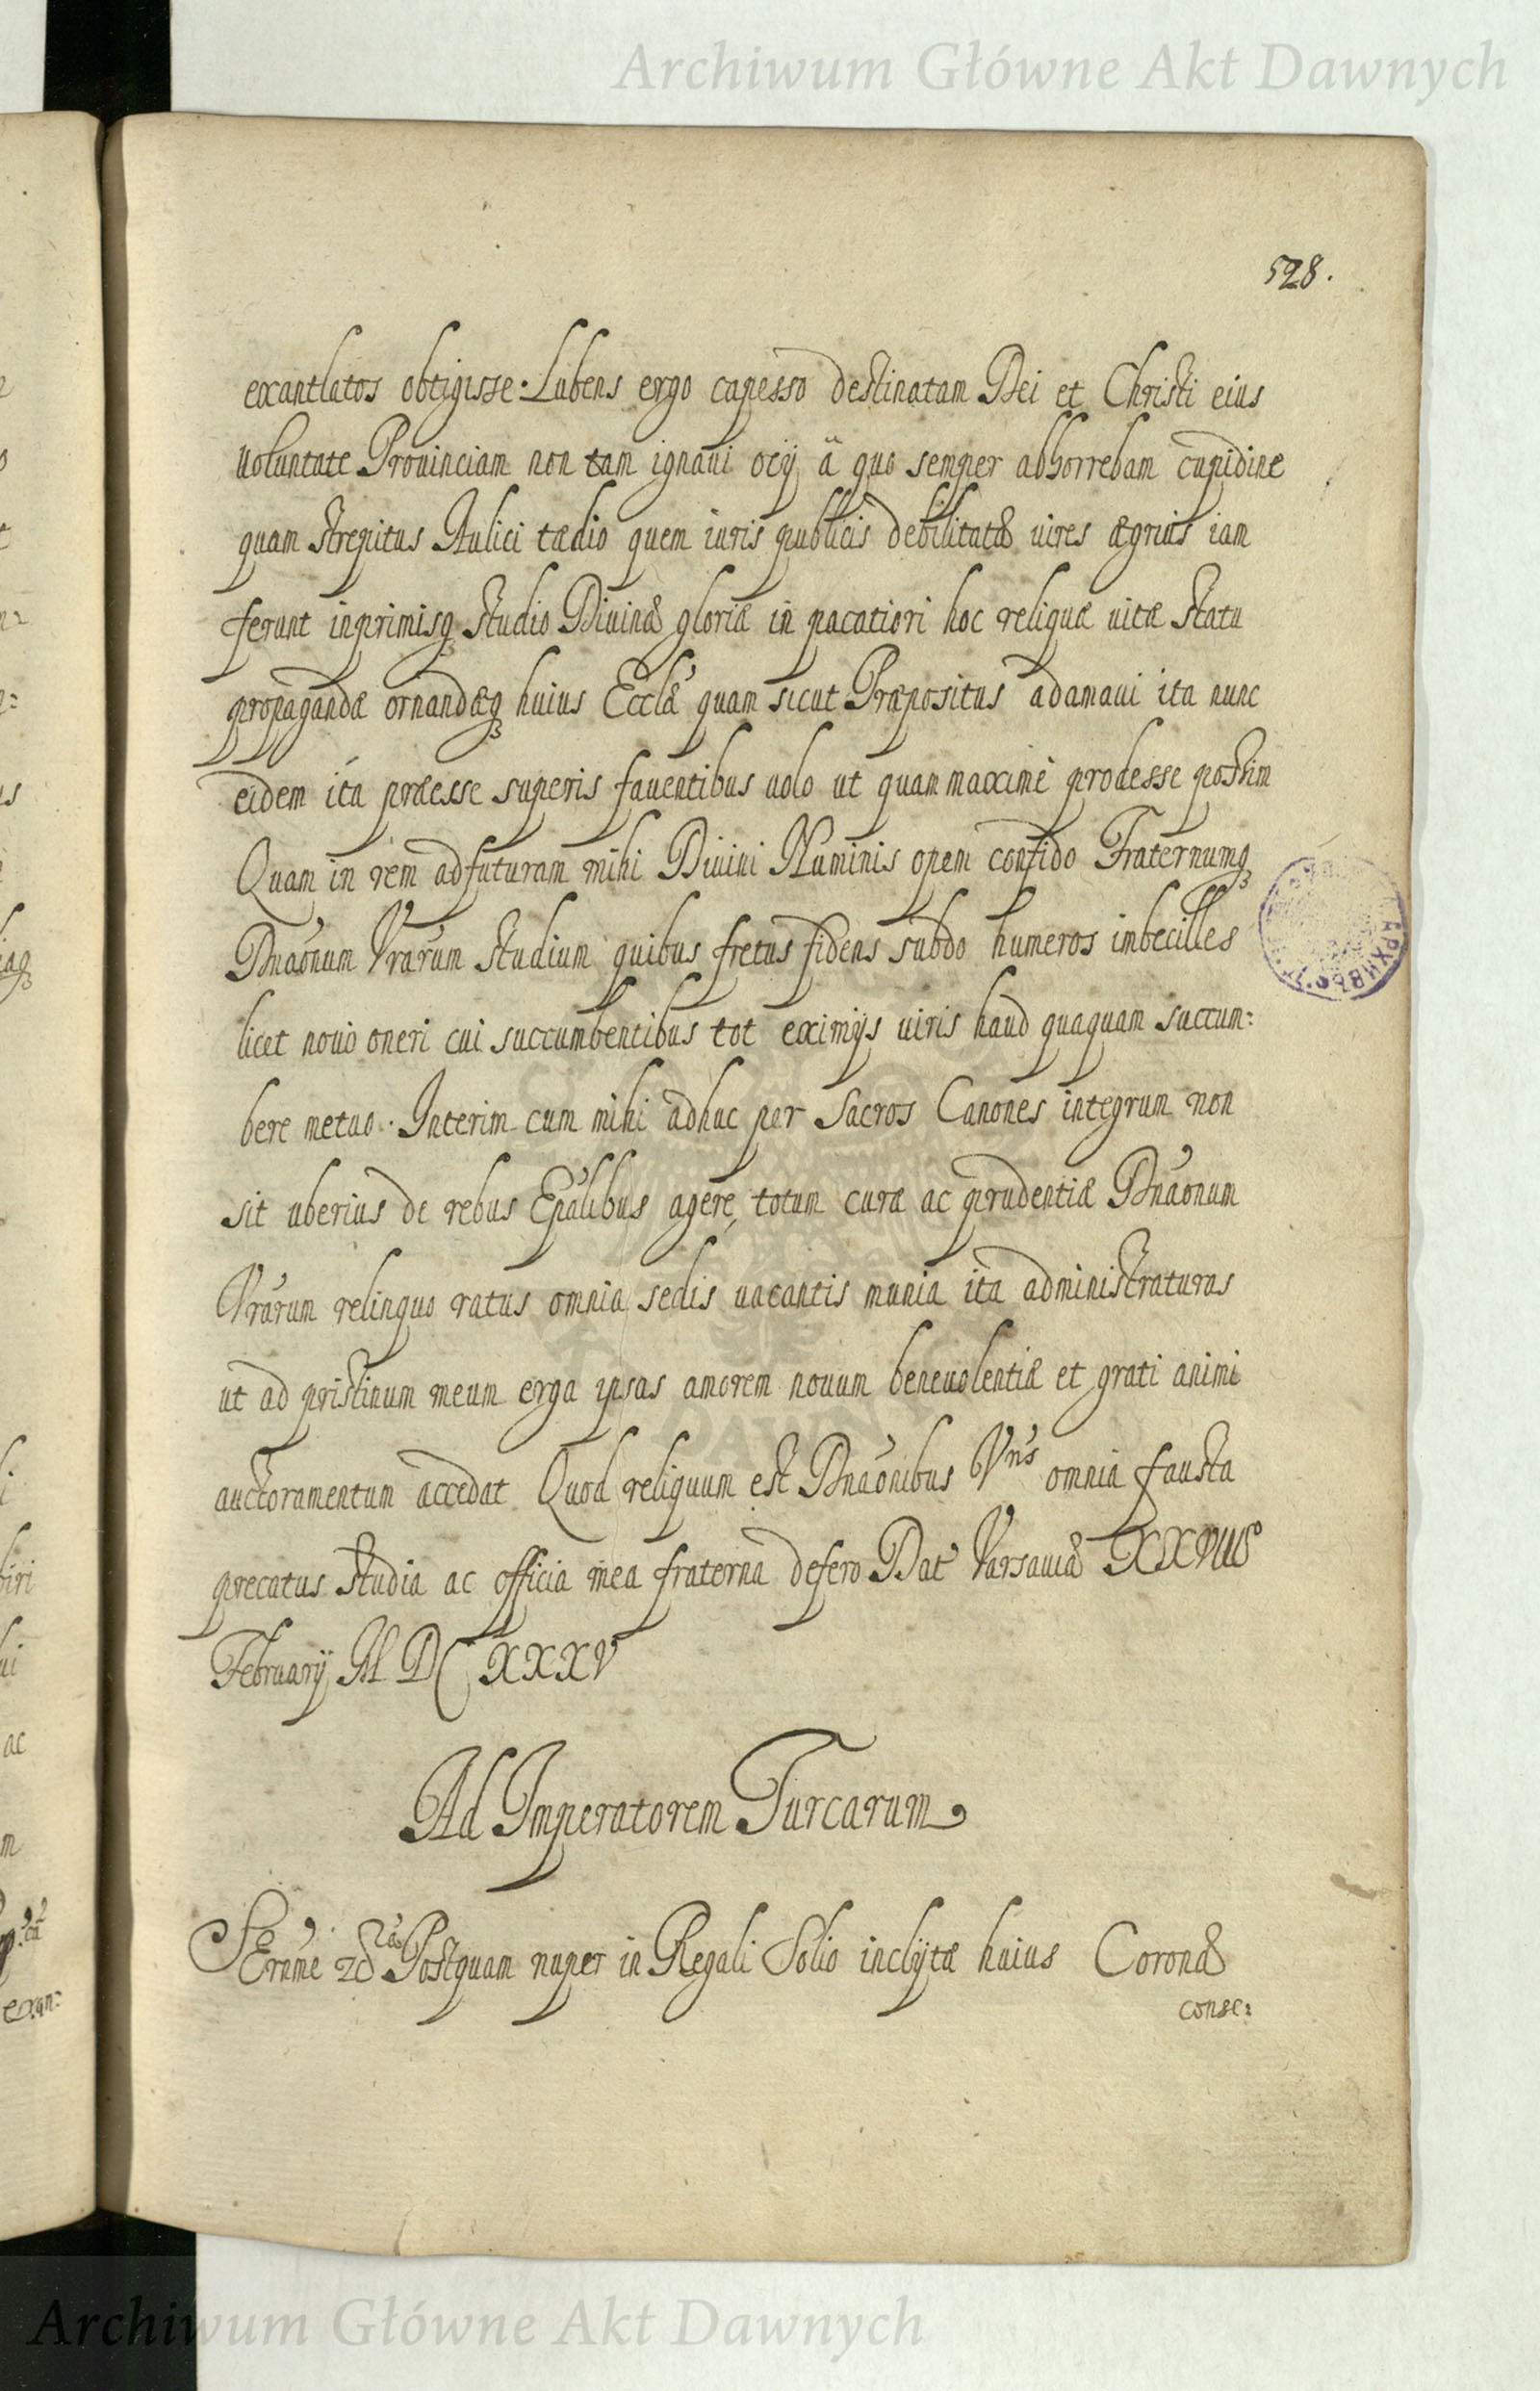 Archiwum Główne Akt Dawnych
528.
exantlatos obtigisse. Lubens ergo capesso destinatam Dei et Christi eius
voluntate Prouinciam non tam ignaui ocij â quo semper abhorrebam cupidine
quam strepitus Aulici tædio quem iuris publicis debilitatæ uires ægrius iam
ferunt inprimisq studio Diuinæ gloriæ in pacatiori hoc reliquæ uitæ statu
propagandæ ornandæq huius Ecclæ quam sicut Præpositus adamaui ita nunc
eidem ita præesse superis fauentibus uolo ut quam maximè prodesse possim
Quam in rem adfuturam mihi Diuini Numinis opem confido Fraternumq
Dnaonum Vrarum studium quibus fretus fidens subdo humeros imbecilles
licet nouo oneri cui succumbentibus tot eximijs uiris haud quaquam succum:
bere metuo. Interim cum mihi adhuc per Sacros Canones integrum non
sit uberius de rebus Epalibus agere, totum curæ ac prudentiæ Dnaonum
Vrarum relinquo ratus omnia sedis uacantis munia ita administraturas
ut ad pristinum meum erga ipsas amorem nouum beneuolentiæ et grati animi
auctoramentum accedat Quod reliquum est Dnaonibus Vris omnia fausta
precatus studia ac officia mea fraterna defero Dat Varsauiæ XXVIII
Februarij M D C XXXV
Ad Imperatorem Turcarum
Serńme Postquam nuper in Regali Solio inclytæ huius Coronæ
conse:
Archiwum Główne Akt Dawnych